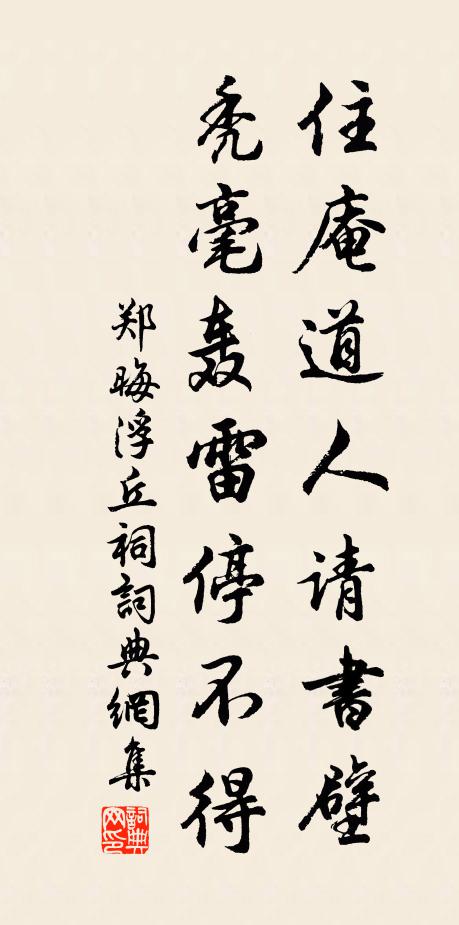 住庵道人请書壁
秃毫轰雷停不得
郑晦浮丘祠詞典網集
詞典
网印